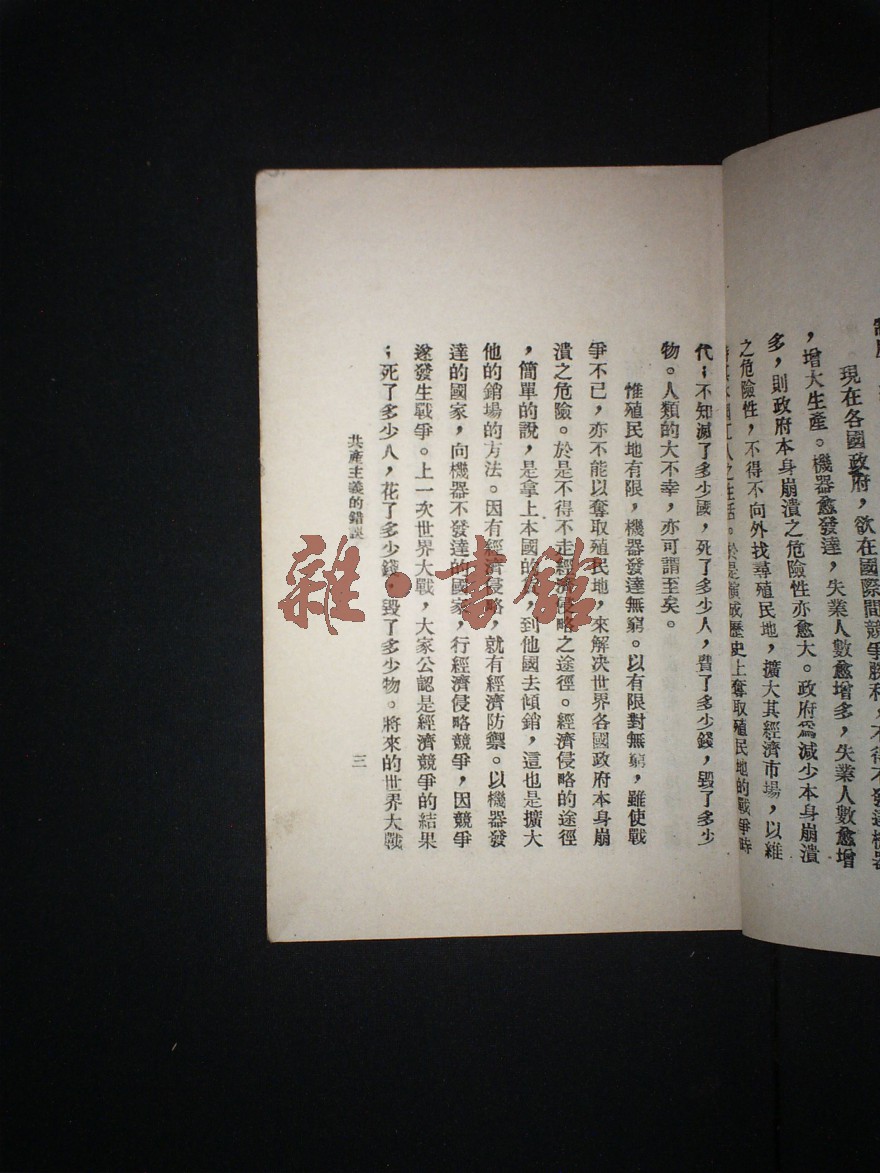 現在各國政府，欲在國際間競爭勝利，不得不發達機器
，增大生產。機器愈發達，失業人數愈增多，失業人數愈增
多，則政府本身崩潰之危險性亦愈大。政府爲減少本身崩潰
之危險性，不得不向外找尋殖民地，擴大其經濟市場，以維
人之生活。於是演成歷史上奪取殖民地的戰爭時
代；不知滅了多少國，死了多少人，費了多少錢，毀了多少
物。人類的大不幸，亦可謂至矣。
惟殖民地有限，機器發達無窮。以有限對無窮，雖使戰
爭不已，亦不能以奪取殖民地，來解決世界各國政府本身崩
潰之危險。於是不得不走經濟侵略之途徑。經濟侵略的途徑
，簡單的說，是拿上本國的，到他國去傾銷，這也是擴大
他的銷場的方法。因有經濟侵略，就有經濟防禦。以機器發
達的國家，向機器不發達的國家，行經濟侵略競爭，因競爭
遂發生戰爭。上一次世界大戰，大家公認是經濟競爭的結果
；死了多少人，花了多少錢，毀了多少物。將來的世界大戰
共產主義的錯誤
三
雜·書館